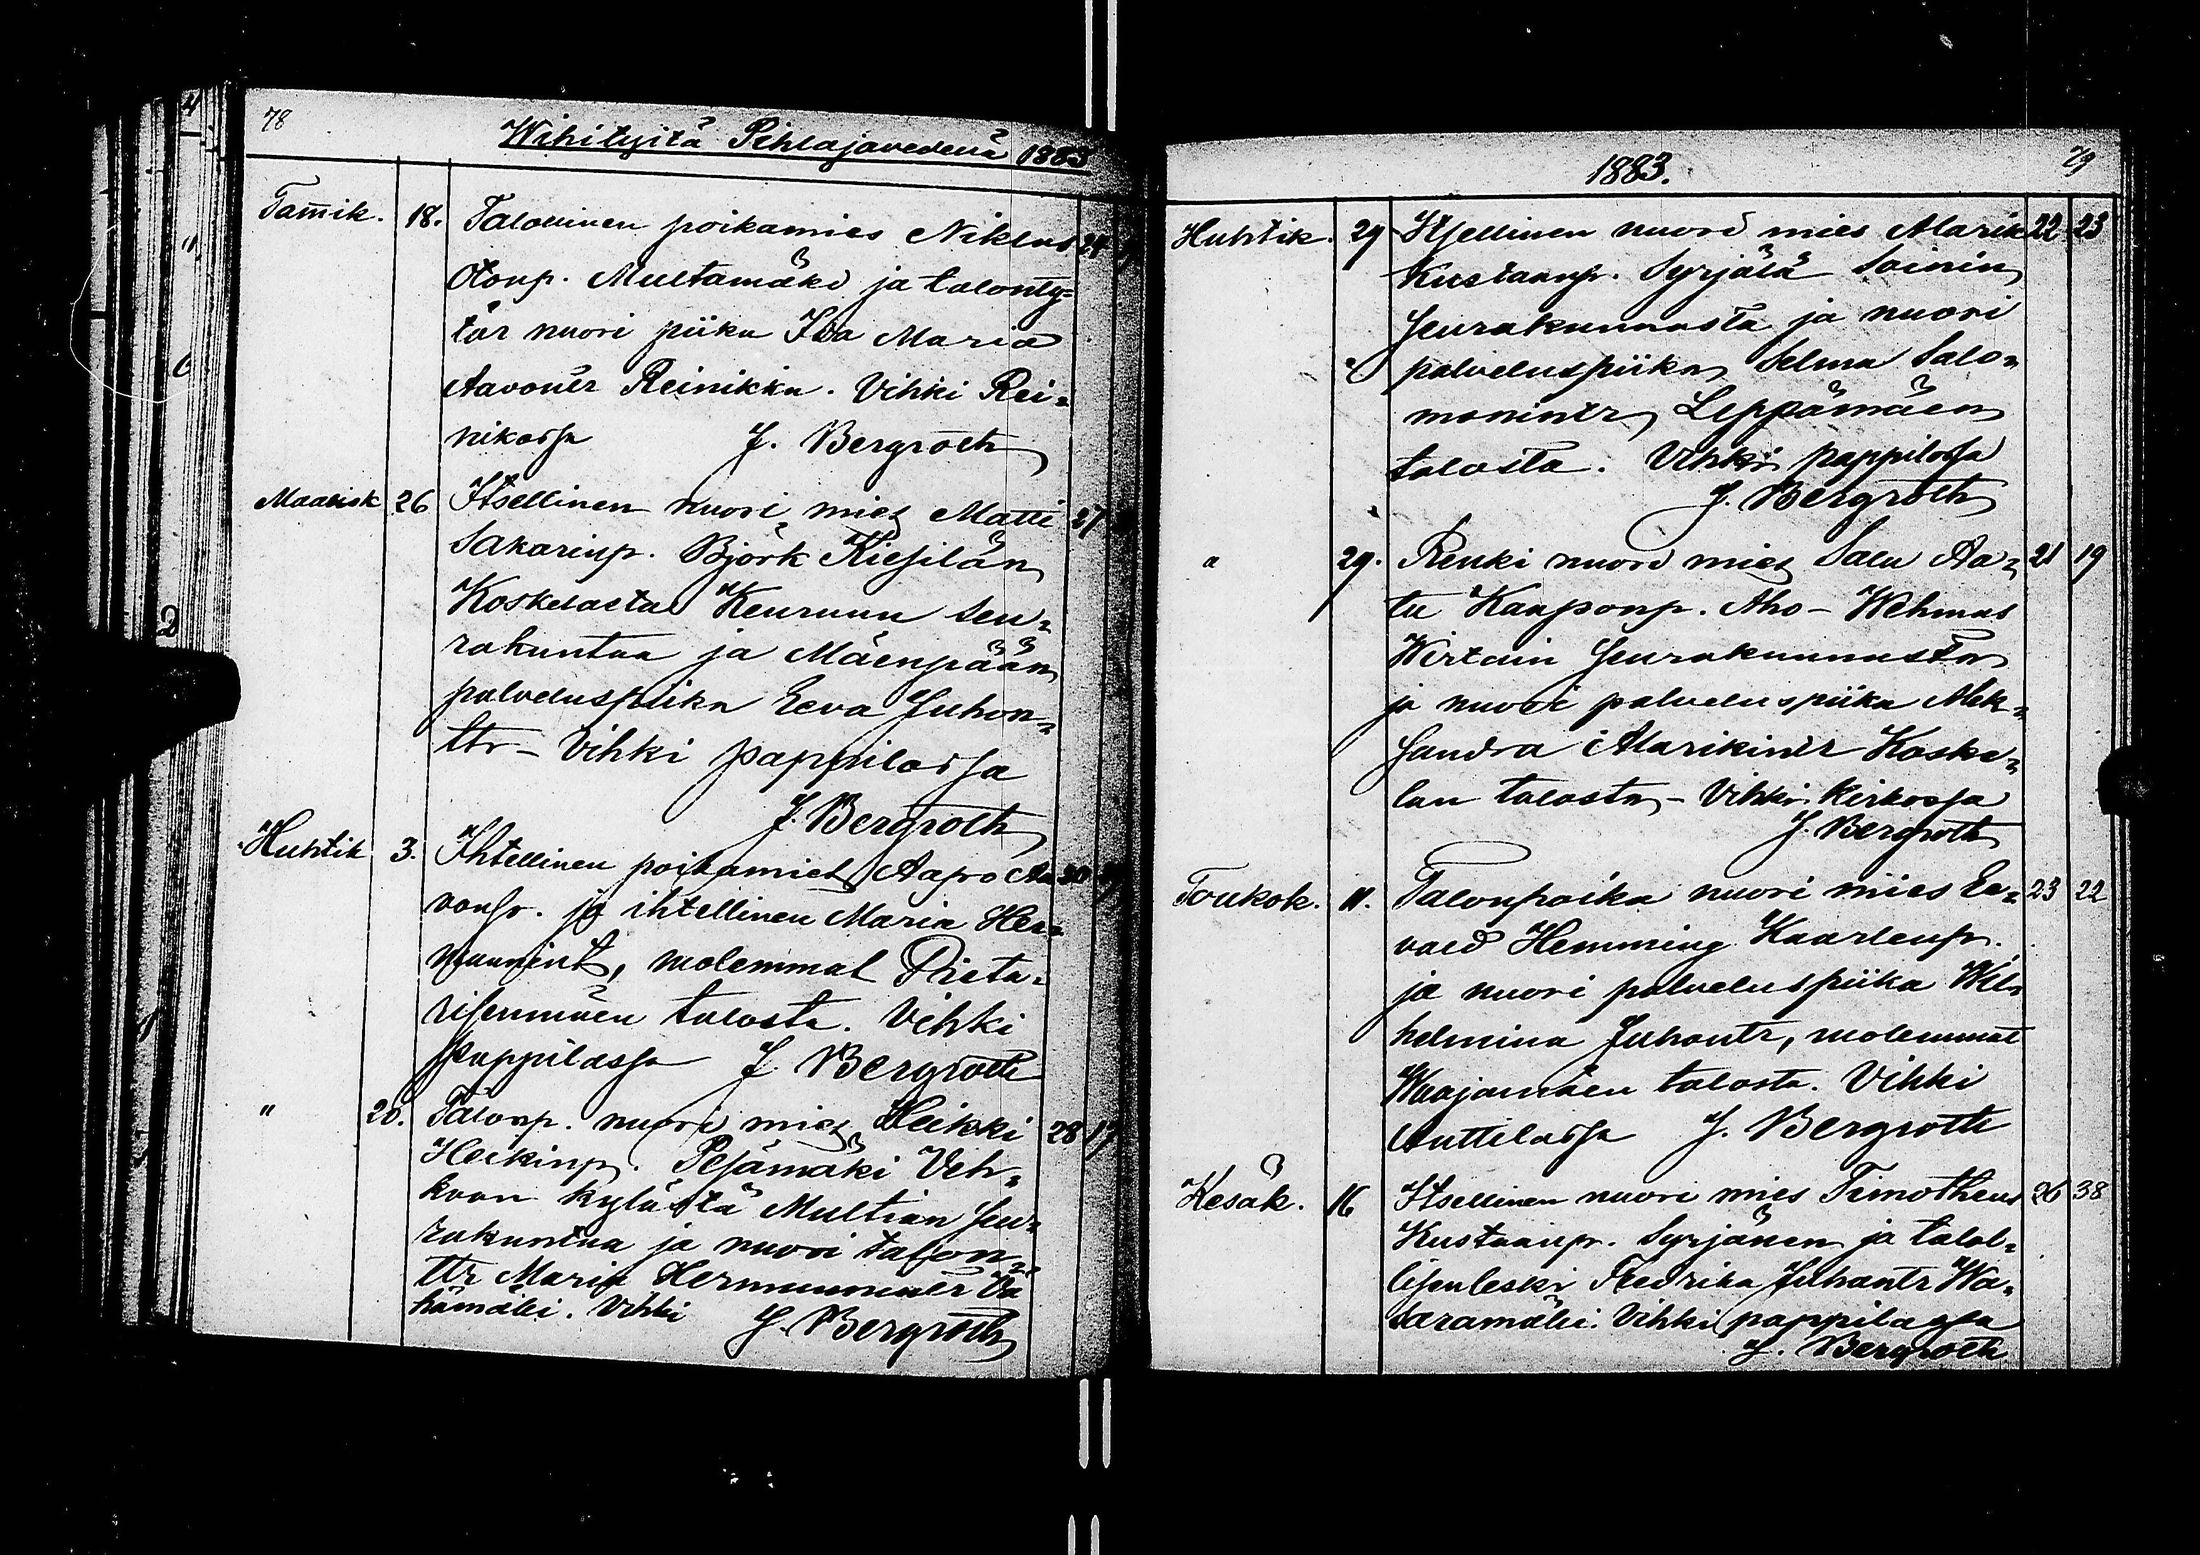 78
Wihityitä Pihlajavedenä 1883
Tam̄ik. 18. Talollinen poikamies Niklas 24
Otonp. Multamäki ja talonty=
tär nuori piika Iva Maria
Aavontr Reinikka. Vihki Rei=
nikassa J. Bergroth
Maalisk 26 Itsellinen nuori mies Matti 27
Sakarinp. Björk Kiesilän
Koskelasta Keuruun seu=
rakuntaa ja Mäenpään
palveluspiika Eeva Juhon=
ttr – Vihki pappilassa
J. Bergroth
Huhtik 3. Ihtellinen poikamies Aapro Aa 30
vonp. ja ihtellinen Maria Her=
mannint, molemmat Pieta=
risenmäen talosta. Vihki
Pappilassa J. Bergroth
" 20. Talonp. nuori mies Heikki 28 17
Heikinp. Pesämäki Veh=
koon kylästä Multian seu=
rakuntaa ja nuori talon=
ttr Maria Hermannintr Vä
hämäki. Vihki J. Bergroth
1883.
79
Huhtik. 29 Itsellinen nuori mies Marik 22 23
Kustaanp. Syrjälä Soinin
seurakunnasta ja nuori
palveluspiika Selma Salo=
monintr Leppämäen
talosta. Vihki pappilassa
J. Bergroth
" 29. Renki nuori mies Salu Aa= 21 19
tu Kaaponp. Aho – Wehmas
Wirtain seurakunnasta
ja nuori palveluspiika Alek=
sandra Marikintr Koske=
lan talosta – Vihki kirkossa
J. Bergroth
Toukok. 11. Talonpoika nuori mies Ee= 23 22
vald Hemming Kaarlenp.
ja nuori palveluspiika Wil=
helmina Juhontr, molemmat
Waajamäen talosta. Vihki
Anttilassa J. Bergroth
Kesäk. 16 Itsellinen nuori mies Timotheus 26 38
Kustaanp. Syrjänen ja talol=
lisenleski Fredrika Juhontr Wa=
saramäki. Vihki pappilassa
J. Bergroth